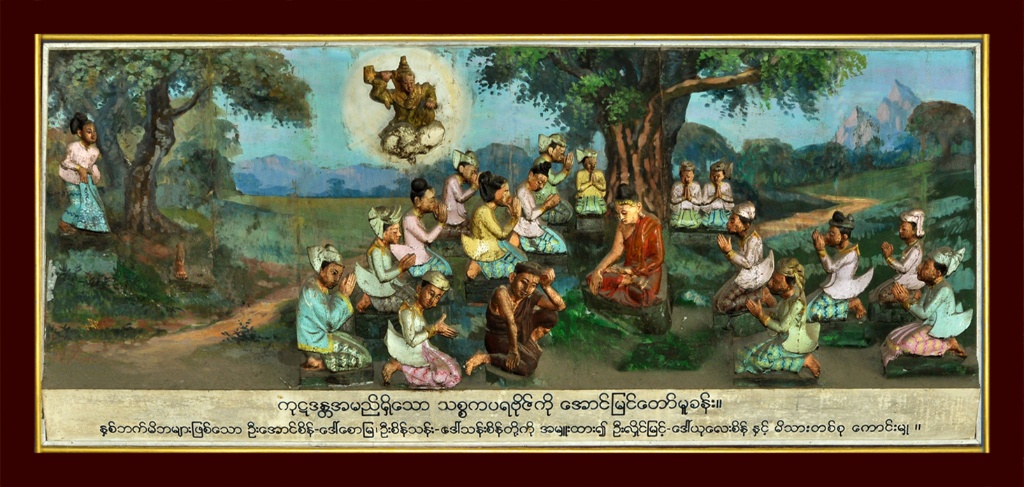 ကုဋဒန္တအမည်ရှိသော သစ္စကပရဗိုဇ်ကို အောင်မြင်တော်မူခန်း။
နှစ်ဘက်မိဘများဖြစ်သော ဦးအောင်စိန်-ဒေါ်စောမြ၊ ဦးစိန်သန်း-ဒေါ်သန်းစိန်တို့ကို အမှူးထား၍ ဦးလှိုင်မြင့်-ဒေါ်ယုလေးစိန် နှင့် မိသားတစ်စု ကောင်းမှု ။